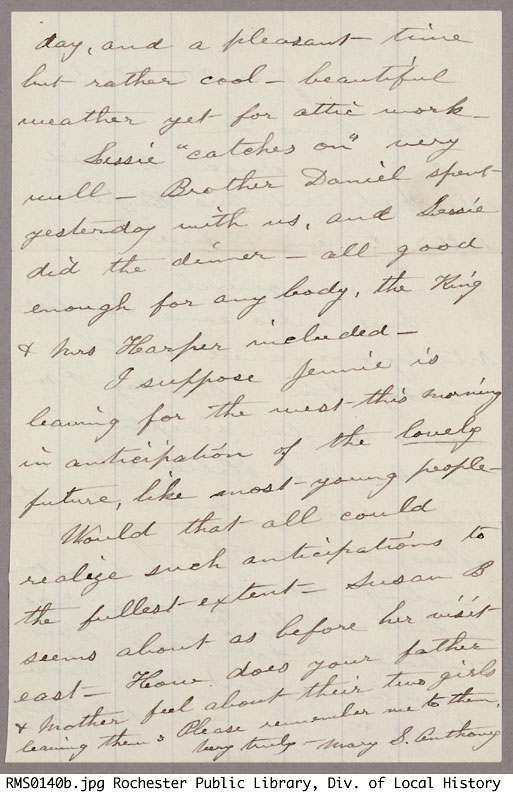 day, and a pleasant time
but rather cool – beautiful
weather yet for attic work –
Lessie "catches on" very
well – Brother Daniel spent
yesterday with us, and Lessie
did the dinner – all good
enough for any body, the King
& Mrs Harper included –
I suppose Jennie is
leaving for the west this morning
in anticipation of the lovely
future, like most young people –
Would that all could
realize such anticipations to
the fullest extent – Susan B
seems about as before her visit
east – How does your father
& Mother feel about their two girls
leaving them? Please remember me to them,
Very truly – Mary S. Anthony
RMS0140b.jpg Rochester Public Library, Div. of Local History